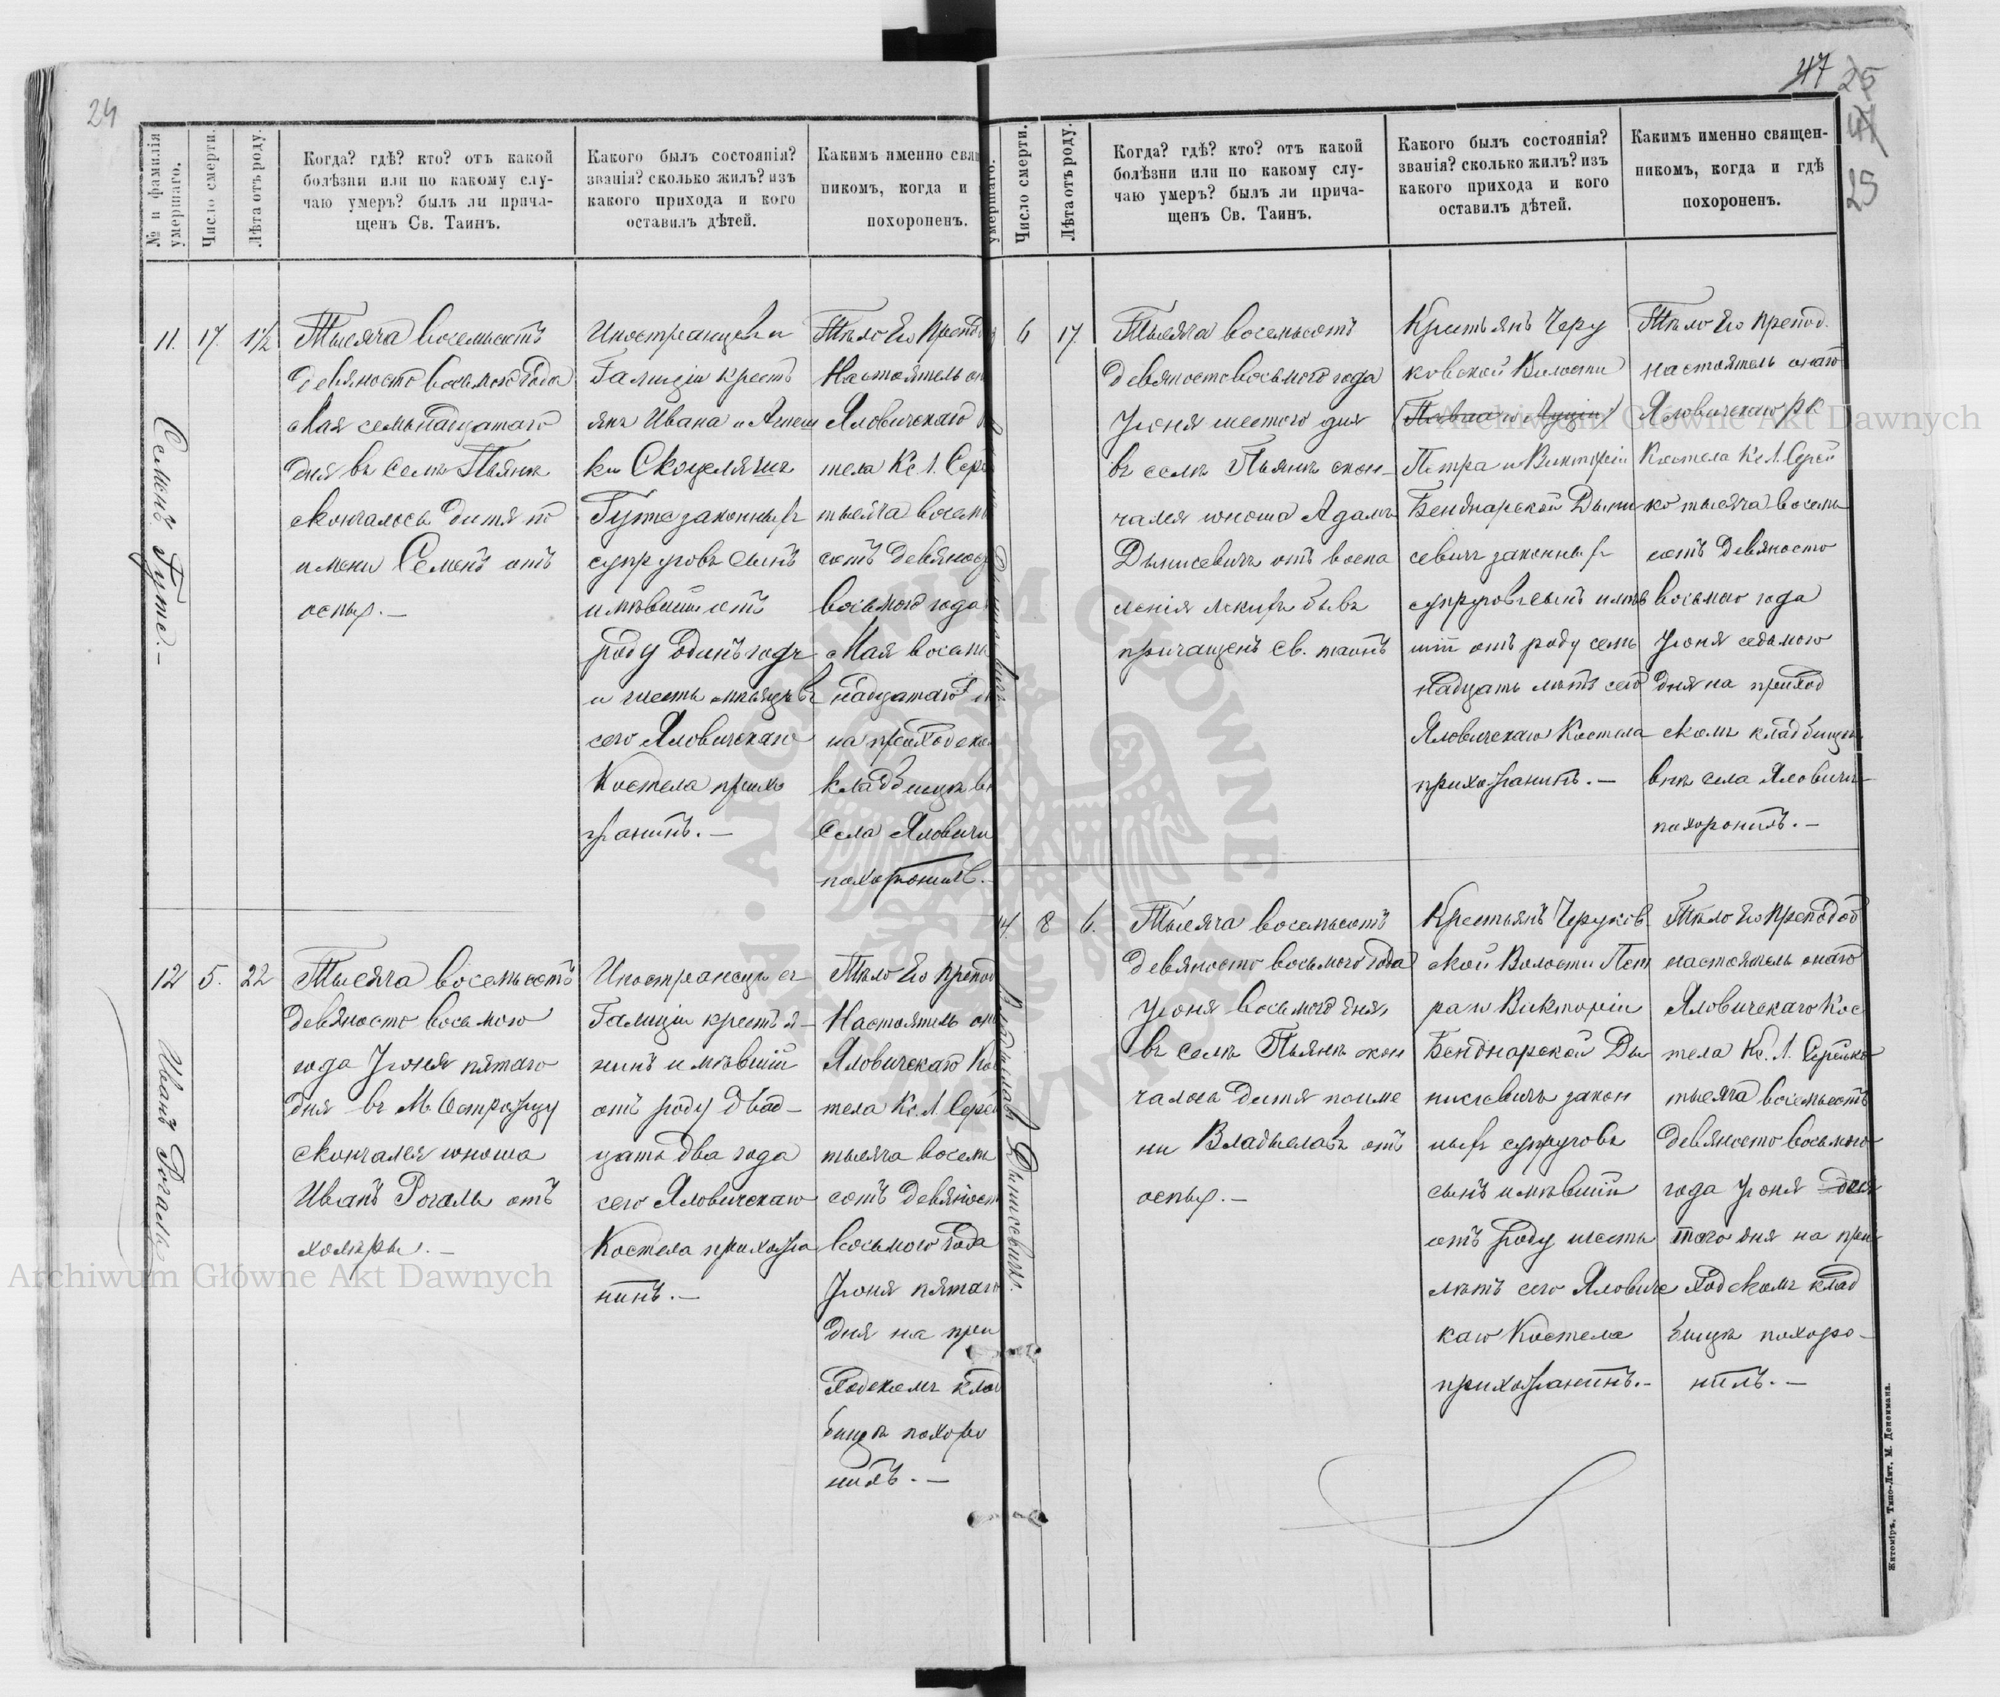 24
№ и фамилія умершаго.
Число смерти.
Лѣта отъ роду.
Когда? гдѣ? кто? отъ какой
болѣзни или по какому слу-
чаю умеръ? былъ ли прича-
щенъ Св. Таинъ.
Какого былъ состоянія?
званія? сколько жилъ? изъ
какого прихода и кого
оставилъ дѣтей.
Какимъ именно свя
никомъ, когда и
похороненъ.
11.
Семенъ Гутъ.—
17
1 1/2
Тысяча восемьсотъ
девяносто восьмого года
Мая семьнадцатаго
дня въ селѣ Пьянѣ
скончалось дитя по
имени Семенъ отъ
оспы.—
Иностранцевъ
Галиціи кресть
янъ Ивана и Агнеш
ки
Гутъ законныхъ
супруговъ сынъ
имѣвшій отъ
роду одинъ годъ
и шесть мѣсяцевъ
сего Яловичскаго
Костела прихо
жанинъ.—
Тѣло Его Препод
Настоятель он
Яловичскаго
тела Кс. Л. Сер
тысяча восемь
сотъ девяност
восьмого года
Мая восемь
надцатаго
на приходском
кладбищѣ вн
села Яловичи
похоронилъ.—
12
Иванъ Рогаль
5.
22
Тысяча восемьсотъ
девяносто восьмого
года Іюня пятаго
дня въ М. Острожцу
скончался юноша
Иванъ Рогаль отъ
холеры.—
Иностранецъ
Галиціи крестья-
нинъ имѣвшій
отъ роду двад-
цать два года
сего Яловичскаго
Костела прихожа
нинъ.—
Тѣло Его Препод
Настоятель он
Яловичскаго Кос
тела Кс. Л. Серей
тысяча восемь
сотъ девяност
восьмого года
Іюня пятаго
дня на при
ходскомъ клад
бищѣ похоро
нилъ.—
47 25
47
25
умершаго.
Число смерти.
Лѣта отъ роду.
Когда? гдѣ? кто? отъ какой
болѣзни или по какому слу-
чаю умеръ? былъ ли прича-
щенъ Св. Таинъ.
Какого былъ состоянія?
званія? сколько жилъ? изъ
какого прихода и кого
оставилъ дѣтей.
Какимъ именно священ-
никомъ, когда и гдѣ
похороненъ.
6
17.
Тысяча восемьсотъ
девяносто восьмого года
Іюня шестого дня
въ селѣ Пьянѣ скон-
чался юноша Адамъ
Дынисевичъ отъ воспа
ленія легкихъ бывъ
причащенъ Св. таинъ
Крестьянъ Черу
ковской Волости
Петра и Викторіи
Бенднарской Дыни
севичъ законныхъ
супруговъ сынъ имѣв
шій отъ роду семь
надцать лѣтъ сего
Яловичскаго Костела
прихожанинъ.—
Тѣло Его Препод.
настоятель онаго
Яловичскаго РК
Костела Кс. Л. Серей
ко тысяча восемь
сотъ девяносто
восьмого года
Іюня седьмого
дня на приход
скомъ кладбищѣ
внѣ села Яловичи
похоронилъ.—
14.
Владыславъ Дынисевичъ.
8
6.
Тысяча восемьсотъ
девяносто восьмого года
Іюня восьмого дня
въ селѣ Пьянѣ скон
чалось дитя по име
ни Владыславъ отъ
оспы.—
Крестьянъ Черуков
ской Волости Пет
ра и Викторіи
Бенднарской Ды
нисевичъ закон
ныхъ супруговъ
сынъ имѣвшій
отъ роду шесть
лѣтъ сего Яловичс
каго Костела
прихожанинъ.—
Тѣло Его Преподоб
настоятель онаго
Яловичскаго Кос
тела Кс. Л. Серейко
тысяча восемьсотъ
девяносто восьмого
года Іюня девя
таго дня на при
ходскомъ клад
бищѣ похоро-
нилъ.—
Житоміръ, Типо-Лит. М. Дененмана.
Archiwum Główne Akt Dawnych
Archiwum Główne Akt Dawnych
ARCHIWUM GŁÓWNE AKT DAWNYCH